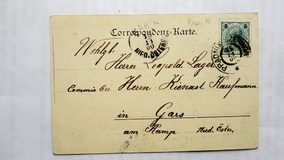 Correspondenz-Karte.
Wohlgb.
Herrn Leopold Lagel
Commis bei Herrn Kienast Kaufmann
in Gars
am Kamp Nied. Östr.